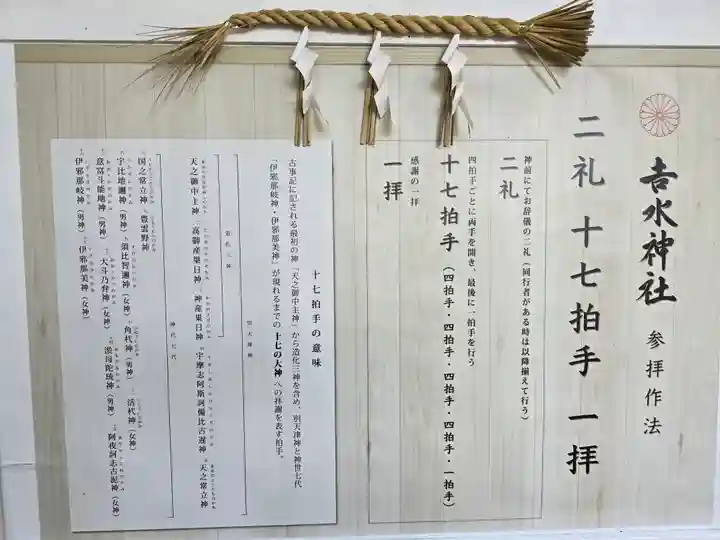 吉水神社
参拝作法
二礼 十七拍手 一拝
神前にてお辞儀の二礼(同行者がある時は以降揃えて行う)
二礼
四拍手ごとに両手を開き、最後に一拍手を行う
十七拍手(四拍手・四拍手・四拍手・四拍手・一拍手)
感謝の一拝
一拝
十七拍手の意味
古事記に記される最初の神「天之御中主神」から造化三神を含め、別天津神と神世七代
「伊邪那岐神・伊邪那美神」が現れるまでの十七の大神への拝謝を表す拍手。
別天津神
造化三神
天之御中主神 高御産巣日神 神産巣日神 宇摩志阿斯訶備比古遅神 天之常立神
神代七代
国之常立神 豊雲野神
宇比地邇神(男神) 須比智邇神(女神) 角杙神(男神) 活杙神(女神)
意富斗能地神(男神) 大斗乃弁神(女神) 淤母陀琉神(男神) 阿夜訶志古泥神(女神)
伊邪那岐神(男神) 伊邪那美神(女神)